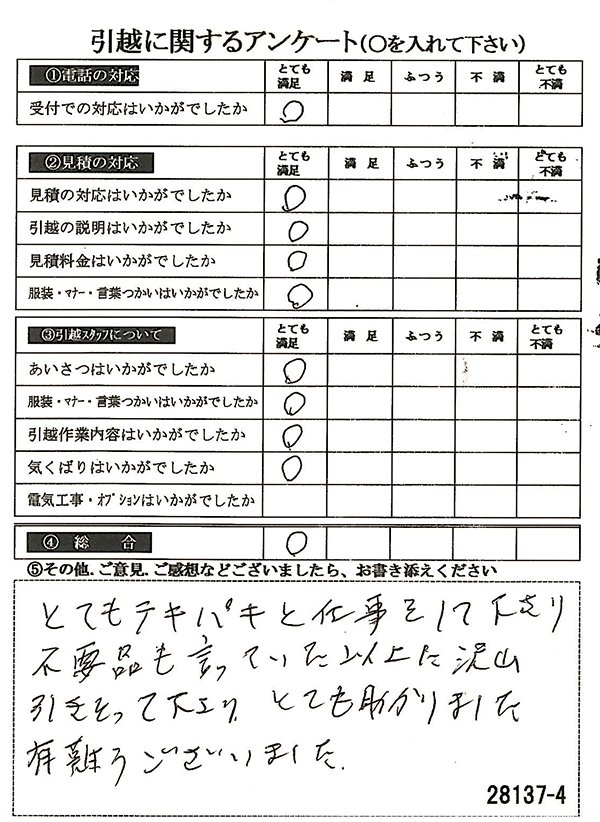 引越に関するアンケート(○を入れて下さい)
①電話の対応 とても満足 満足 ふつう 不満 とても不満
受付での対応はいかがでしたか ○
②見積の対応 とても満足 満足 ふつう 不満 とても不満
見積の対応はいかがでしたか ○
引越の説明はいかがでしたか ○
見積料金はいかがでしたか ○
服装・マナー・言葉つかいはいかがでしたか ○
③引越スタッフについて とても満足 満足 ふつう 不満 とても不満
あいさつはいかがでしたか ○
服装・マナー・言葉つかいはいかがでしたか ○
引越作業内容はいかがでしたか ○
気くばりはいかがでしたか ○
電気工事・オプションはいかがでしたか
④ 総 合 ○
⑤その他.ご意見.ご感想などございましたら、お書き添えください
とてもテキパキと仕事をして下さり
不要品も言っていた以上に沢山
引きとって下さり、とても助かりました
有難うございました.
28137-4